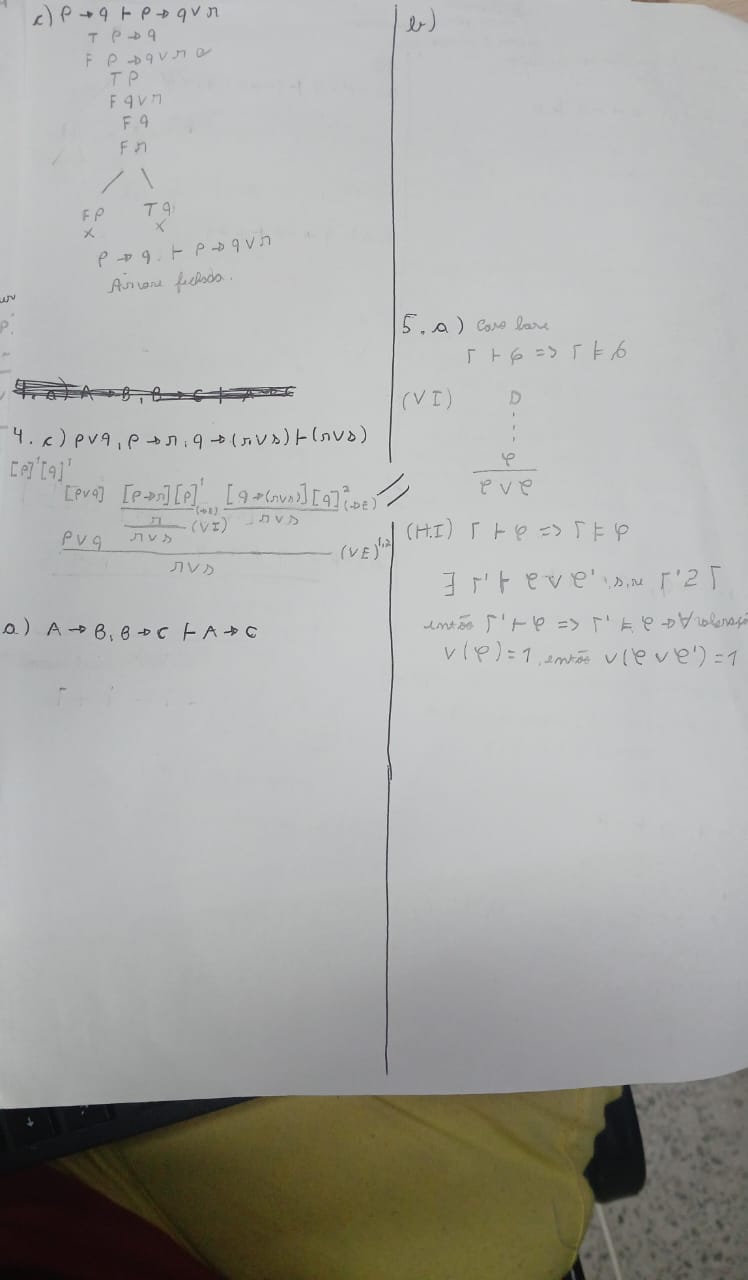 c) p → q ⊢ p → q ∨ r
T p → q
F p → q ∨ r
T p
F q ∨ r
F q
F r
F p T q
x x
p → q ⊢ p → q ∨ r
Árvore fechada.
4. a) A → B, B → C ⊢ A → C
4. c) p ∨ q, p → r, q → (r ∨ s) ⊢ (r ∨ s)
[p]¹ [q]¹
[p ∨ q] [p → r] [p]¹ [q → (r ∨ s)] [q]² (→E)
r (→E) r ∨ s
r ∨ s (∨I)
p ∨ q
(∨E)¹,²
r ∨ s
a) A → B, B → C ⊢ A → C
b)
5. a) Caso base
Γ ⊢ φ => Γ ⊨ φ
(∨I) D
φ
φ ∨ φ
(H.I) Γ ⊢ φ => Γ ⊨ φ
∃ Γ', Γ' ⊢ φ ∨ φ
então Γ' ⊢ φ => Γ' ⊨ φ → ∀
v(φ) = 1, então v(φ ∨ φ') = 1